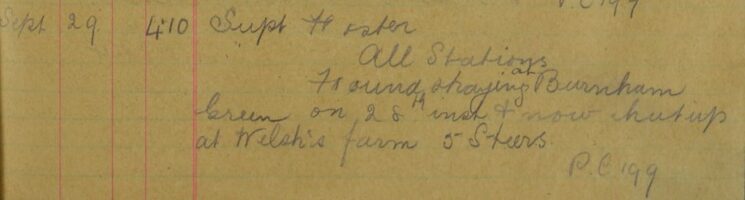 P.C 199
Sept 29 410 Supt Foster
All Stations
Found straying at Burnham
Green on 28th inst & now shut up
at Welsh's farm 5 Steers.
P.C 199